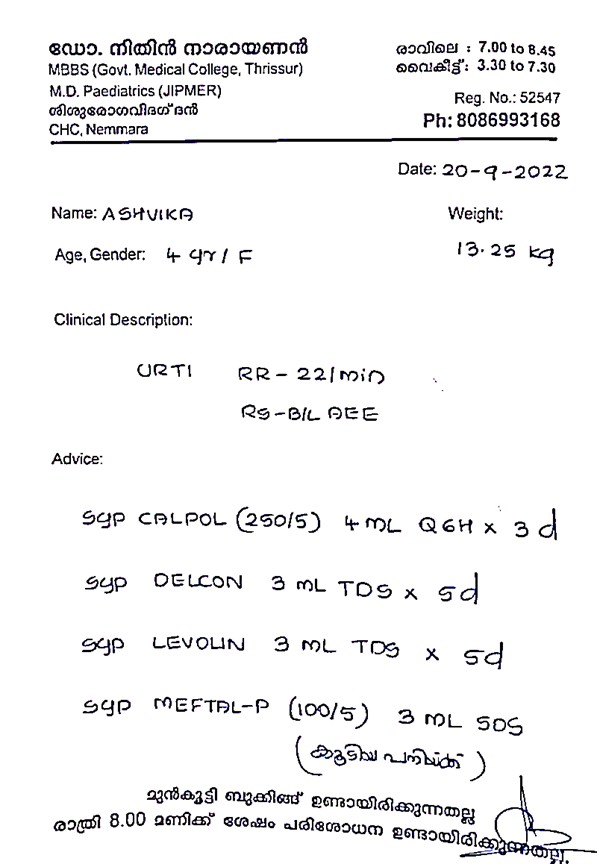 ഡോ. നിതിൻ നാരായണൻ
MBBS (Govt. Medical College, Thrissur)
M.D. Paediatrics (JIPMER)
ശിശുരോഗവിദഗ്ദൻ
CHC, Nemmara
രാവിലെ : 7.00 to 8.45
വൈകീട്ട് : 3.30 to 7.30
Reg. No.: 52547
Ph: 8086993168
Date: 20-9-2022
Name: ASHVIKA
Weight:
Age, Gender: 4 yr / F
13.25 kg
Clinical Description:
URTI RR - 22/min
RS - B/L AEE
Advice:
syp CALPOL (250/5) 4 ML Q6H x 3 d
syp DELCON 3 ML TDS x 5d
syp LEVOLIN 3 ML TDS x 5d
syp MEFTAL-P (100/5) 3 ML SOS
(കൂടിയ പനിയ്ക്ക്)
മുൻകൂട്ടി ബുക്കിങ്ങ് ഉണ്ടായിരിക്കുന്നതല്ല
രാത്രി 8.00 മണിക്ക് ശേഷം പരിശോധന ഉണ്ടായിരിക്കുന്നതല്ല.